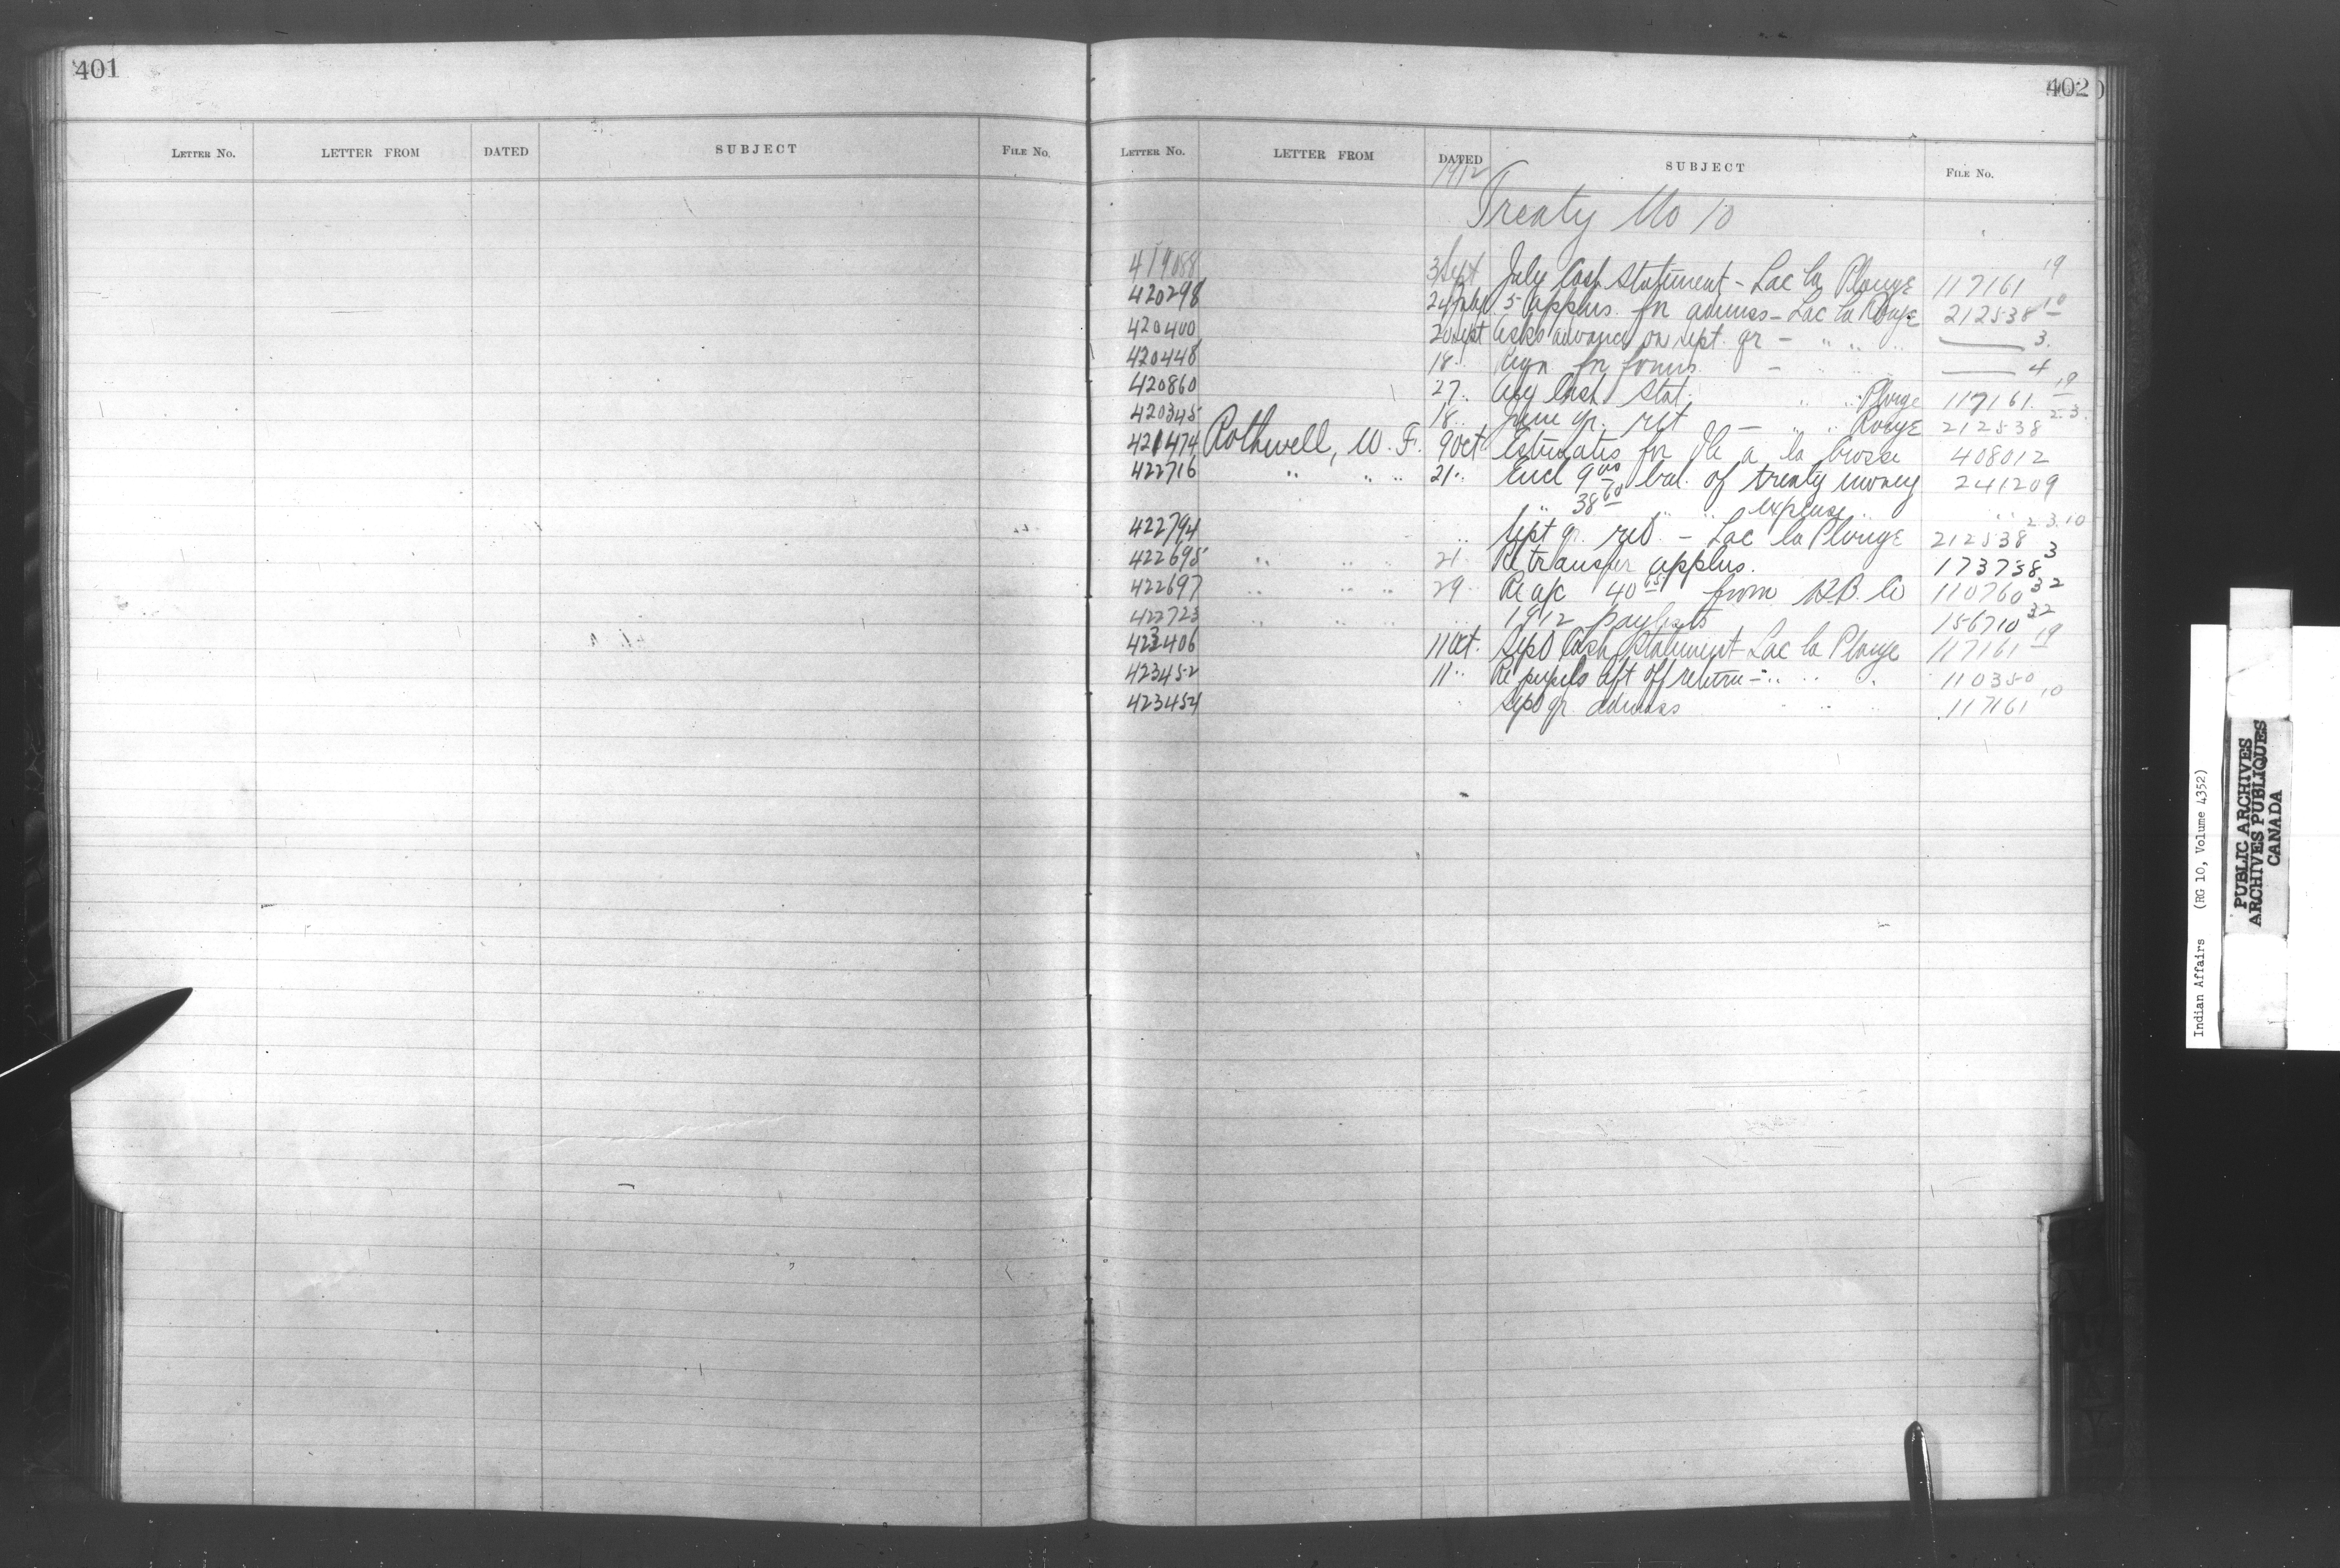 401
LETTER No. LETTER FROM DATED SUBJECT FILE No.
402
LETTER No. LETTER FROM DATED SUBJECT FILE No.
1912
Treaty No 10
419088 3 Sept July Cash Statement - Lac la Plonge 117161 19
420298 24 5 applns. for admiss - Lac la Ronge 212538 10
420400 20 Sept Asks advance on Sept. qr - " " " —— 3.
420448 18 " Reqn for forms - " " —— 4
420860 27 " Aug Cash Stat. " " Plonge 117161 19
420345 18 " June qr. ret - " " Ronge 212538 2.3.
421474 Rothwell, W. F. 9 Oct Estimates for Ile a la Crosse 408012
422716 " " " 21 " Encl 9 00 bal. of treaty money 241209
" 38 60 " " expense " " "
422794 " Sept qr. ret. - Lac la Plonge 212538 2.3.10
422695 " " " 21 " Re transfer applns. 173738 3
422697 " " " 29 " Re a/c 40 65 from H.B. Co 110760 32
422723 " " " " 1912 paylists 156710 32
423406 11 Oct. Sept Cash Statement - Lac la Plonge 117161 19
423452 11 " Re pupils return - " " " 110350
423454 " Sept qr. admiss " " 117161 10
Indian Affairs (RG 10, Volume 4352)
PUBLIC ARCHIVES
ARCHIVES PUBLIQUES
CANADA